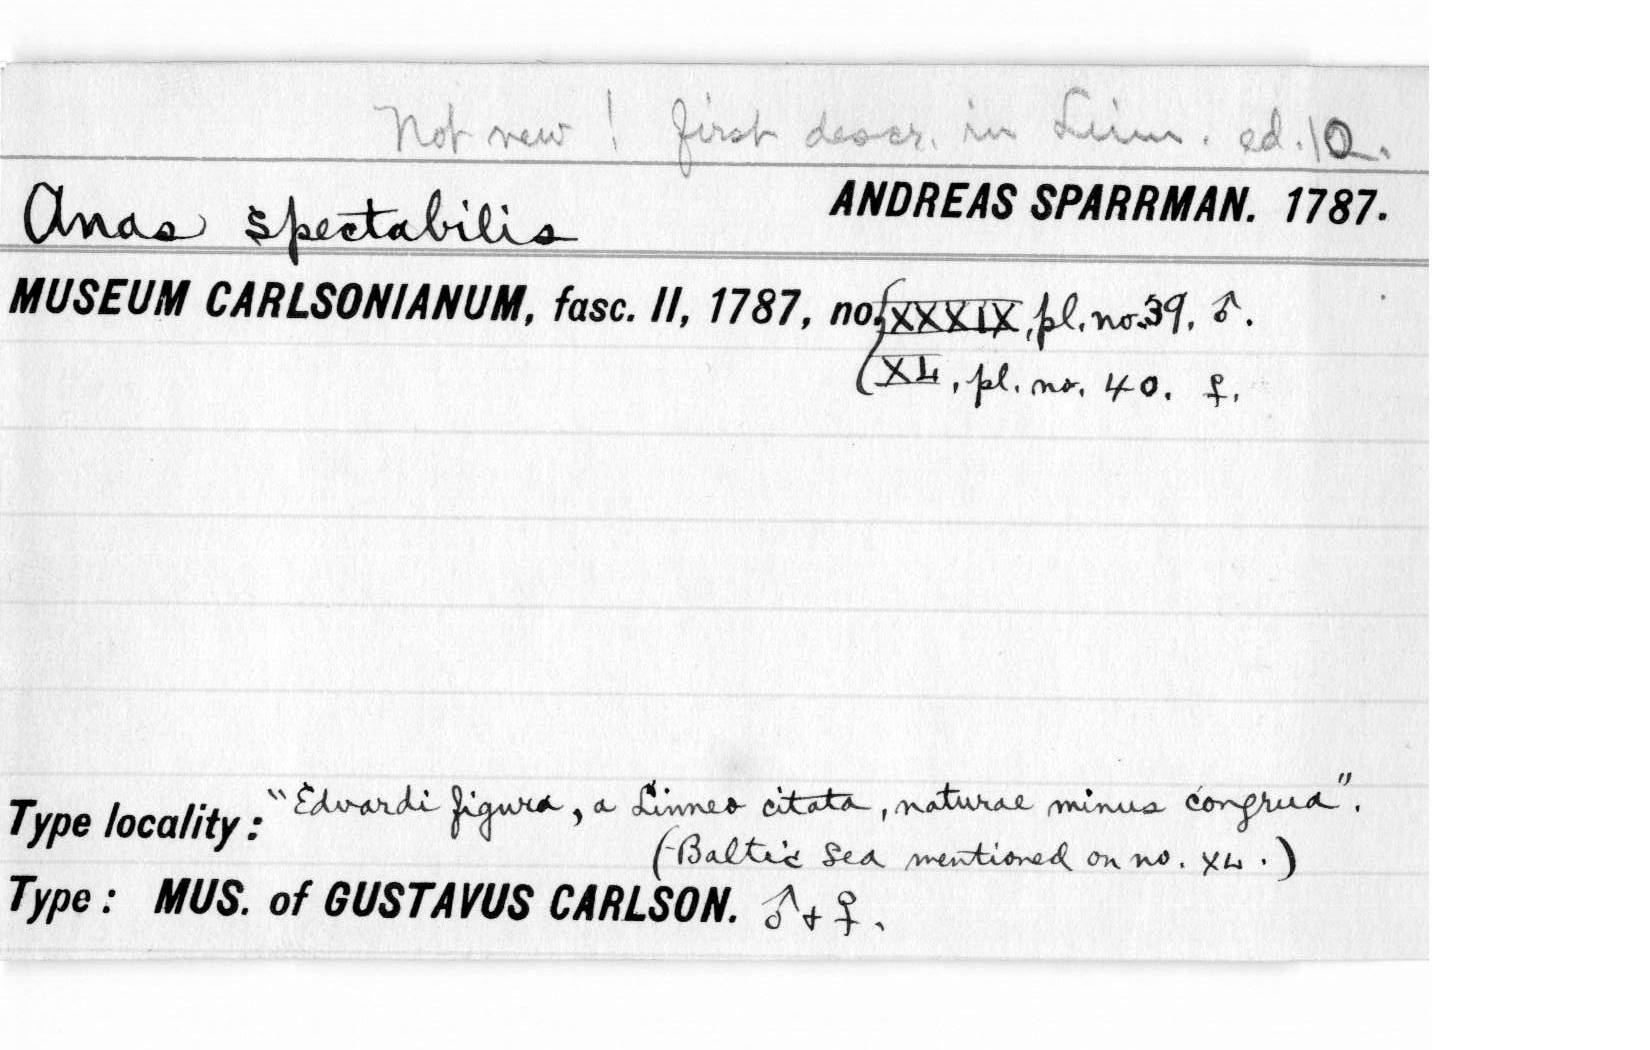 Not new! first descr. in Linn. ed. 10.
Anas spectabilis ANDREAS SPARRMAN. 1787.
MUSEUM CARLSONIANUM, fasc. II, 1787, no. XXXIX, pl. no. 39. ♂.
XL, pl. no. 40. ♀.
Type locality: "Edvardi figura, a Linneo citata, naturae minus congrua".
(Baltic Sea mentioned on no. XL.)
Type: MUS. of GUSTAVUS CARLSON. ♂ + ♀.